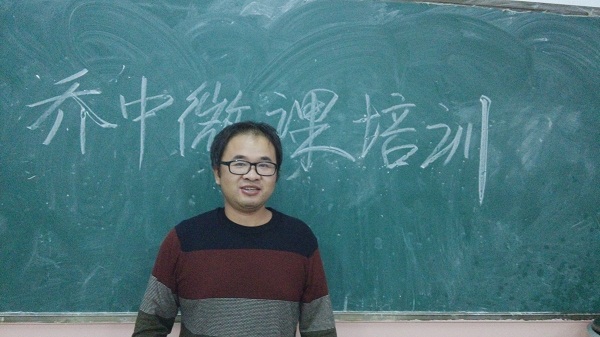 乔中微课培训